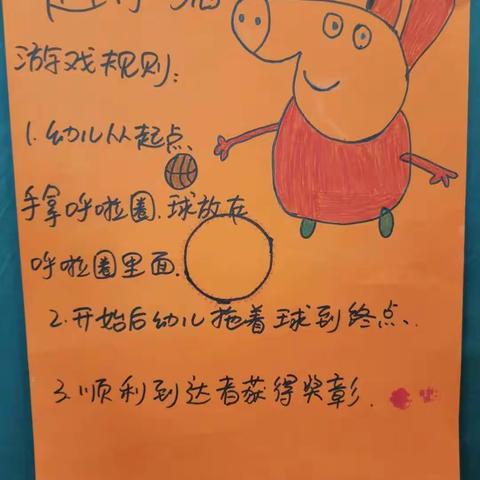 游戏规则：
1.幼儿从起点
手拿呼啦圈.球放在
呼啦圈里面.
2.开始后幼儿拖着球到终点.
3.顺利到达者获得奖彰.